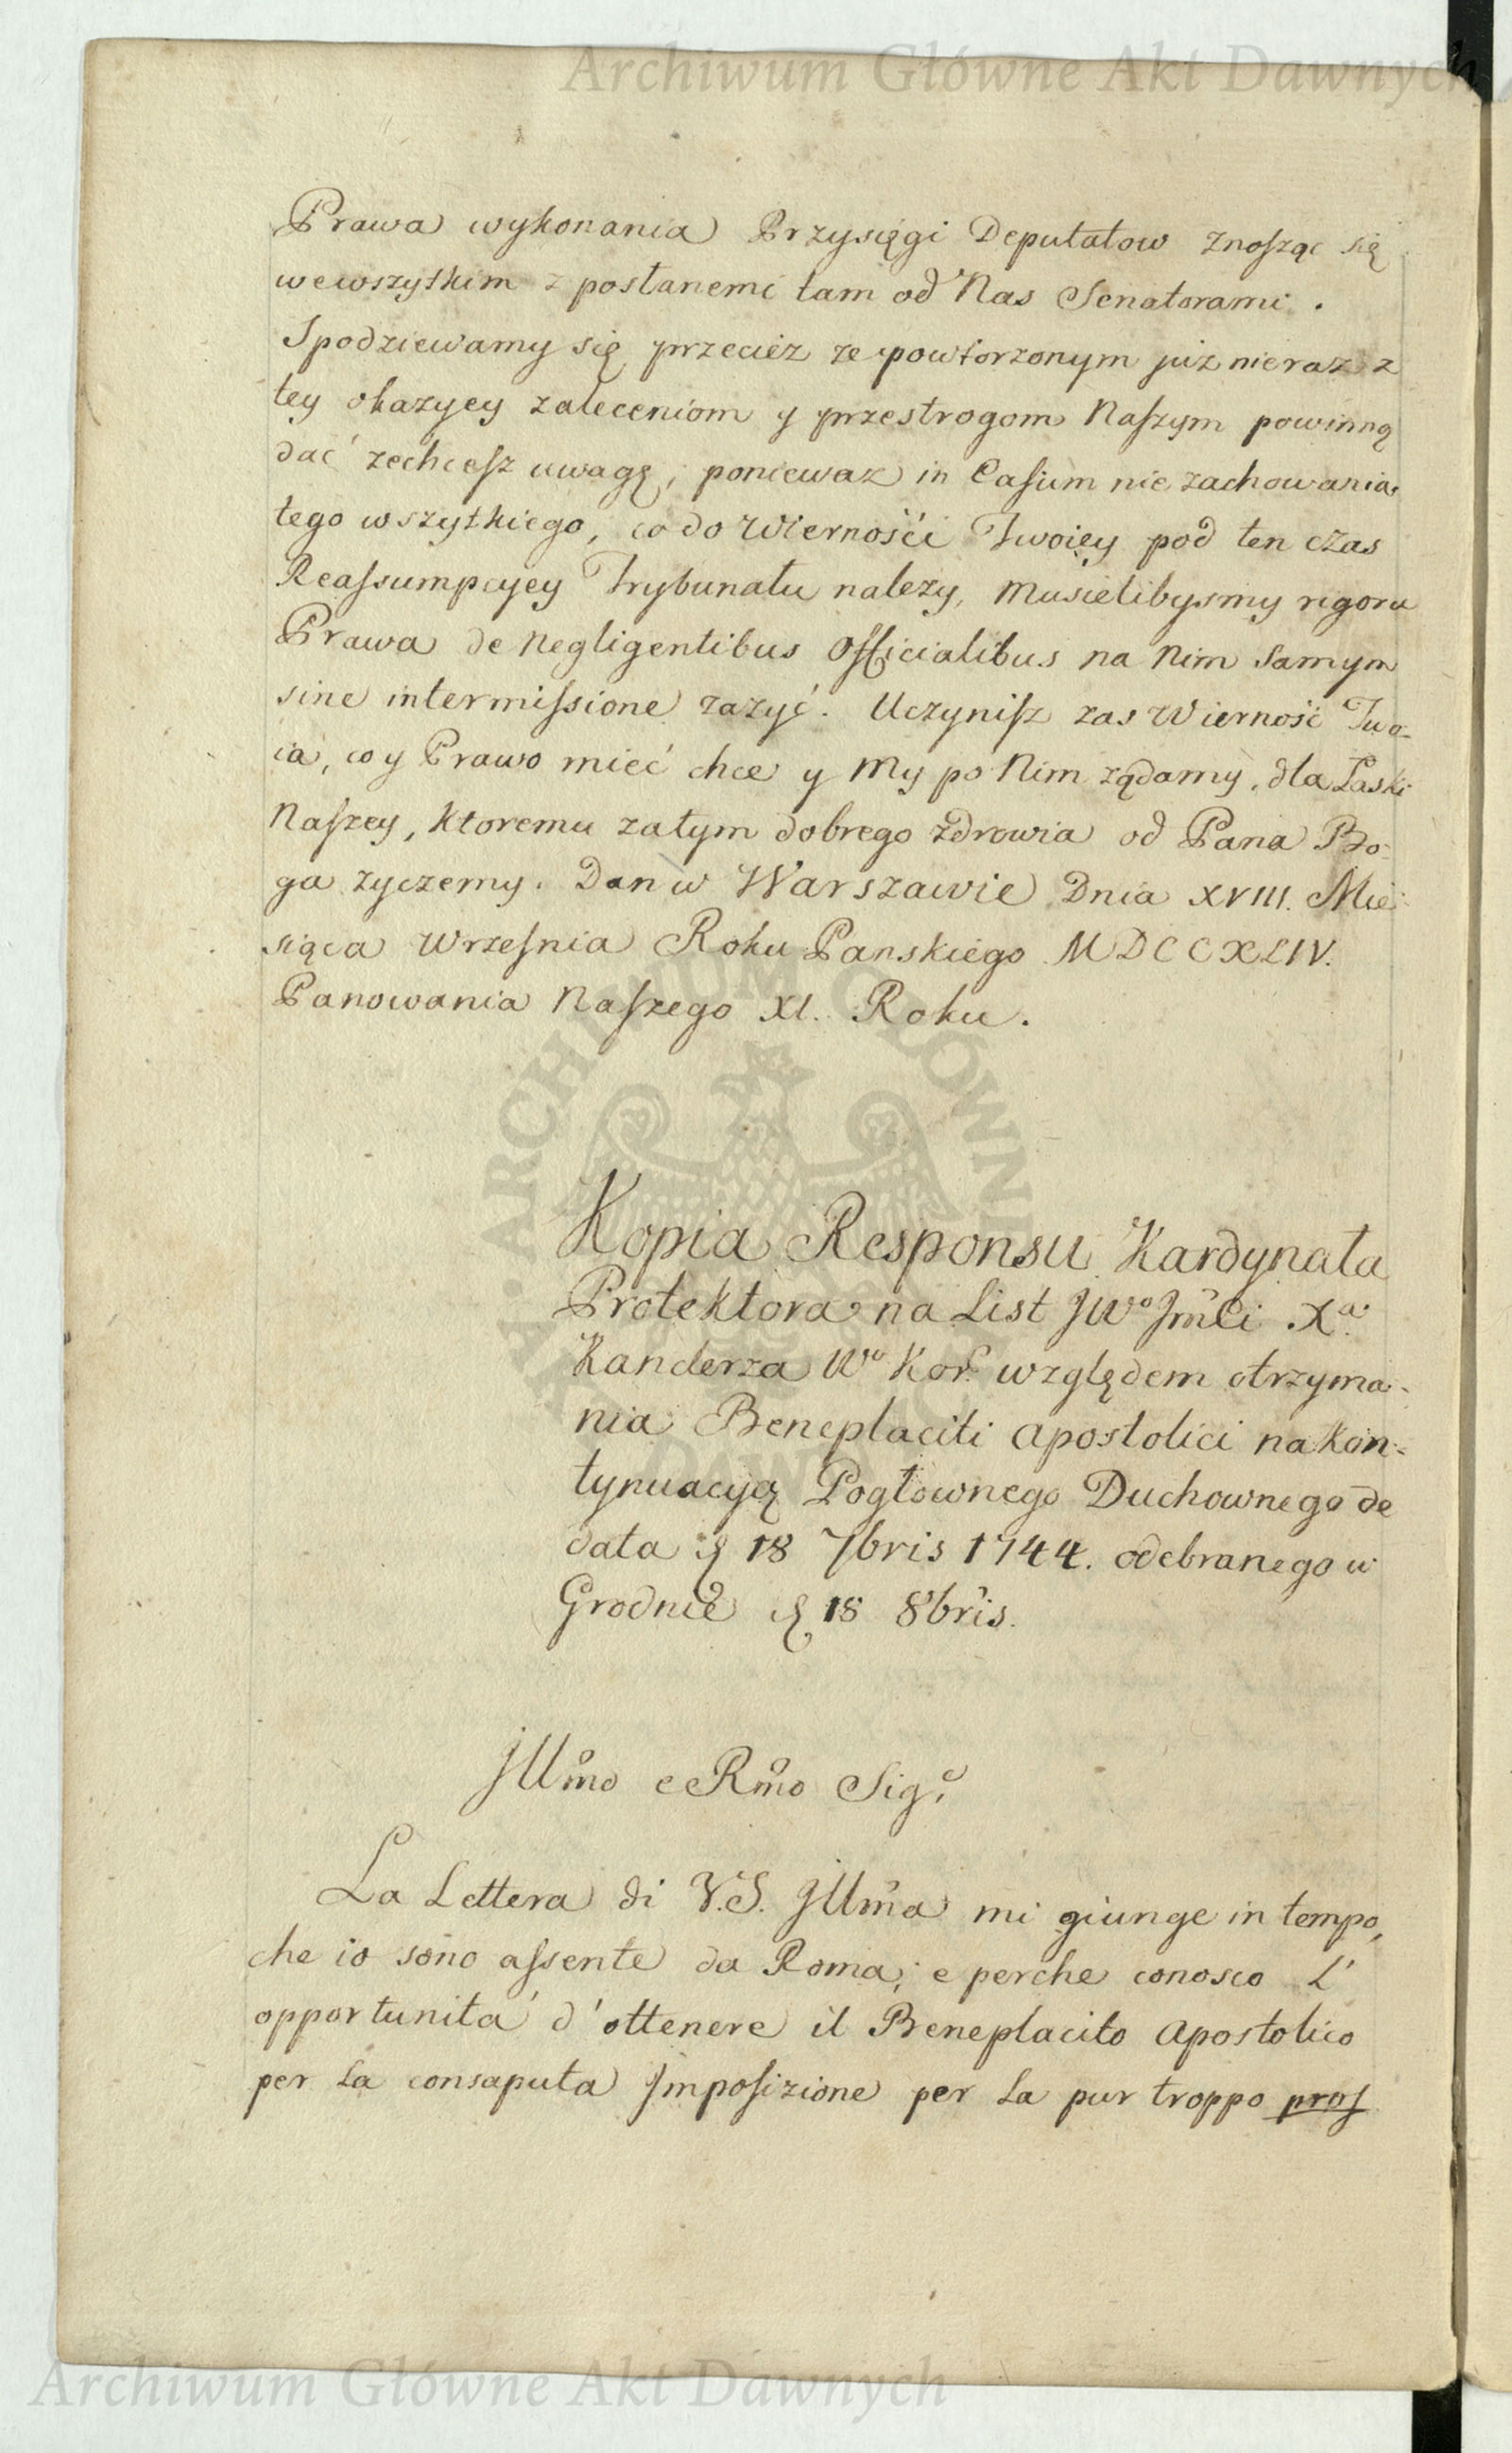 Archiwum Główne Akt Dawnych
Prawa wykonania Przysięgi Deputatow znosząc się
wewszytkim z posłanemi tam od Nas Senatorami.
Spodziewamy się przecież że powtorzonym już nieraz z
tey okazyey zaleceniom y przestrogom Naszym powinną
dać zechcesz uwagę, poniewaz in Casum nie zachowania
tego wszytkiego, co do Wiernośći Twoiey pod ten czas
Reassumpcyey Trybunału nalezy, Musielibysmy rigoru
Prawa de Negligentibus Officialibus na Nim Samym
sine intermissione zazyć. Uczynisz zas Wierność Two-
ia, co y Prawo mieć chce y My po Nim ządamy, dla Łaski
Naszey, Ktoremu zatym dobrego zdrowia od Pana Bo-
ga zyczemy. Dan w Warszawie Dnia XVIII. Mie-
siąca Wrzesnia Roku Panskiego MDCCXLIV.
Panowania Naszego XI. Roku.
Kopia Responsu Kardynała
Protektora na List JWo Jmći Xa.
Kanclerza Wo Kor. względem otrzyma-
nia Beneplaciti Apostolici na Kon-
tynuacyą Pogłownego Duchownego de
data 18 7bris 1744. odebranego w
Grodnie 18 8bris.
Illmo e Rmo Sige.
La Lettera di V.S. Illma mi giunge in tempo,
che io sono assente da Roma; e perche conosco L'
opportunita' d'ottenere il Beneplacito Apostolico
per La consaputa Imposizione per La pur troppo pros
Archiwum Główne Akt Dawnych